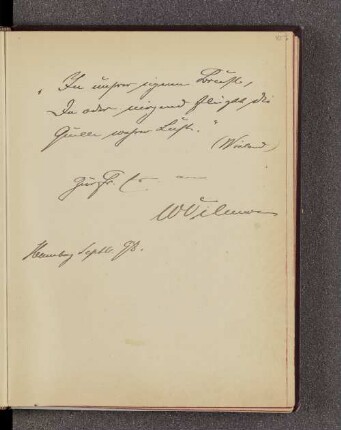 „In unsrer eignen Brust,
Da oder nirgend fließt die
Quelle wahrer Lust.“
(Wieland)
Hamburg Septbr. 98.